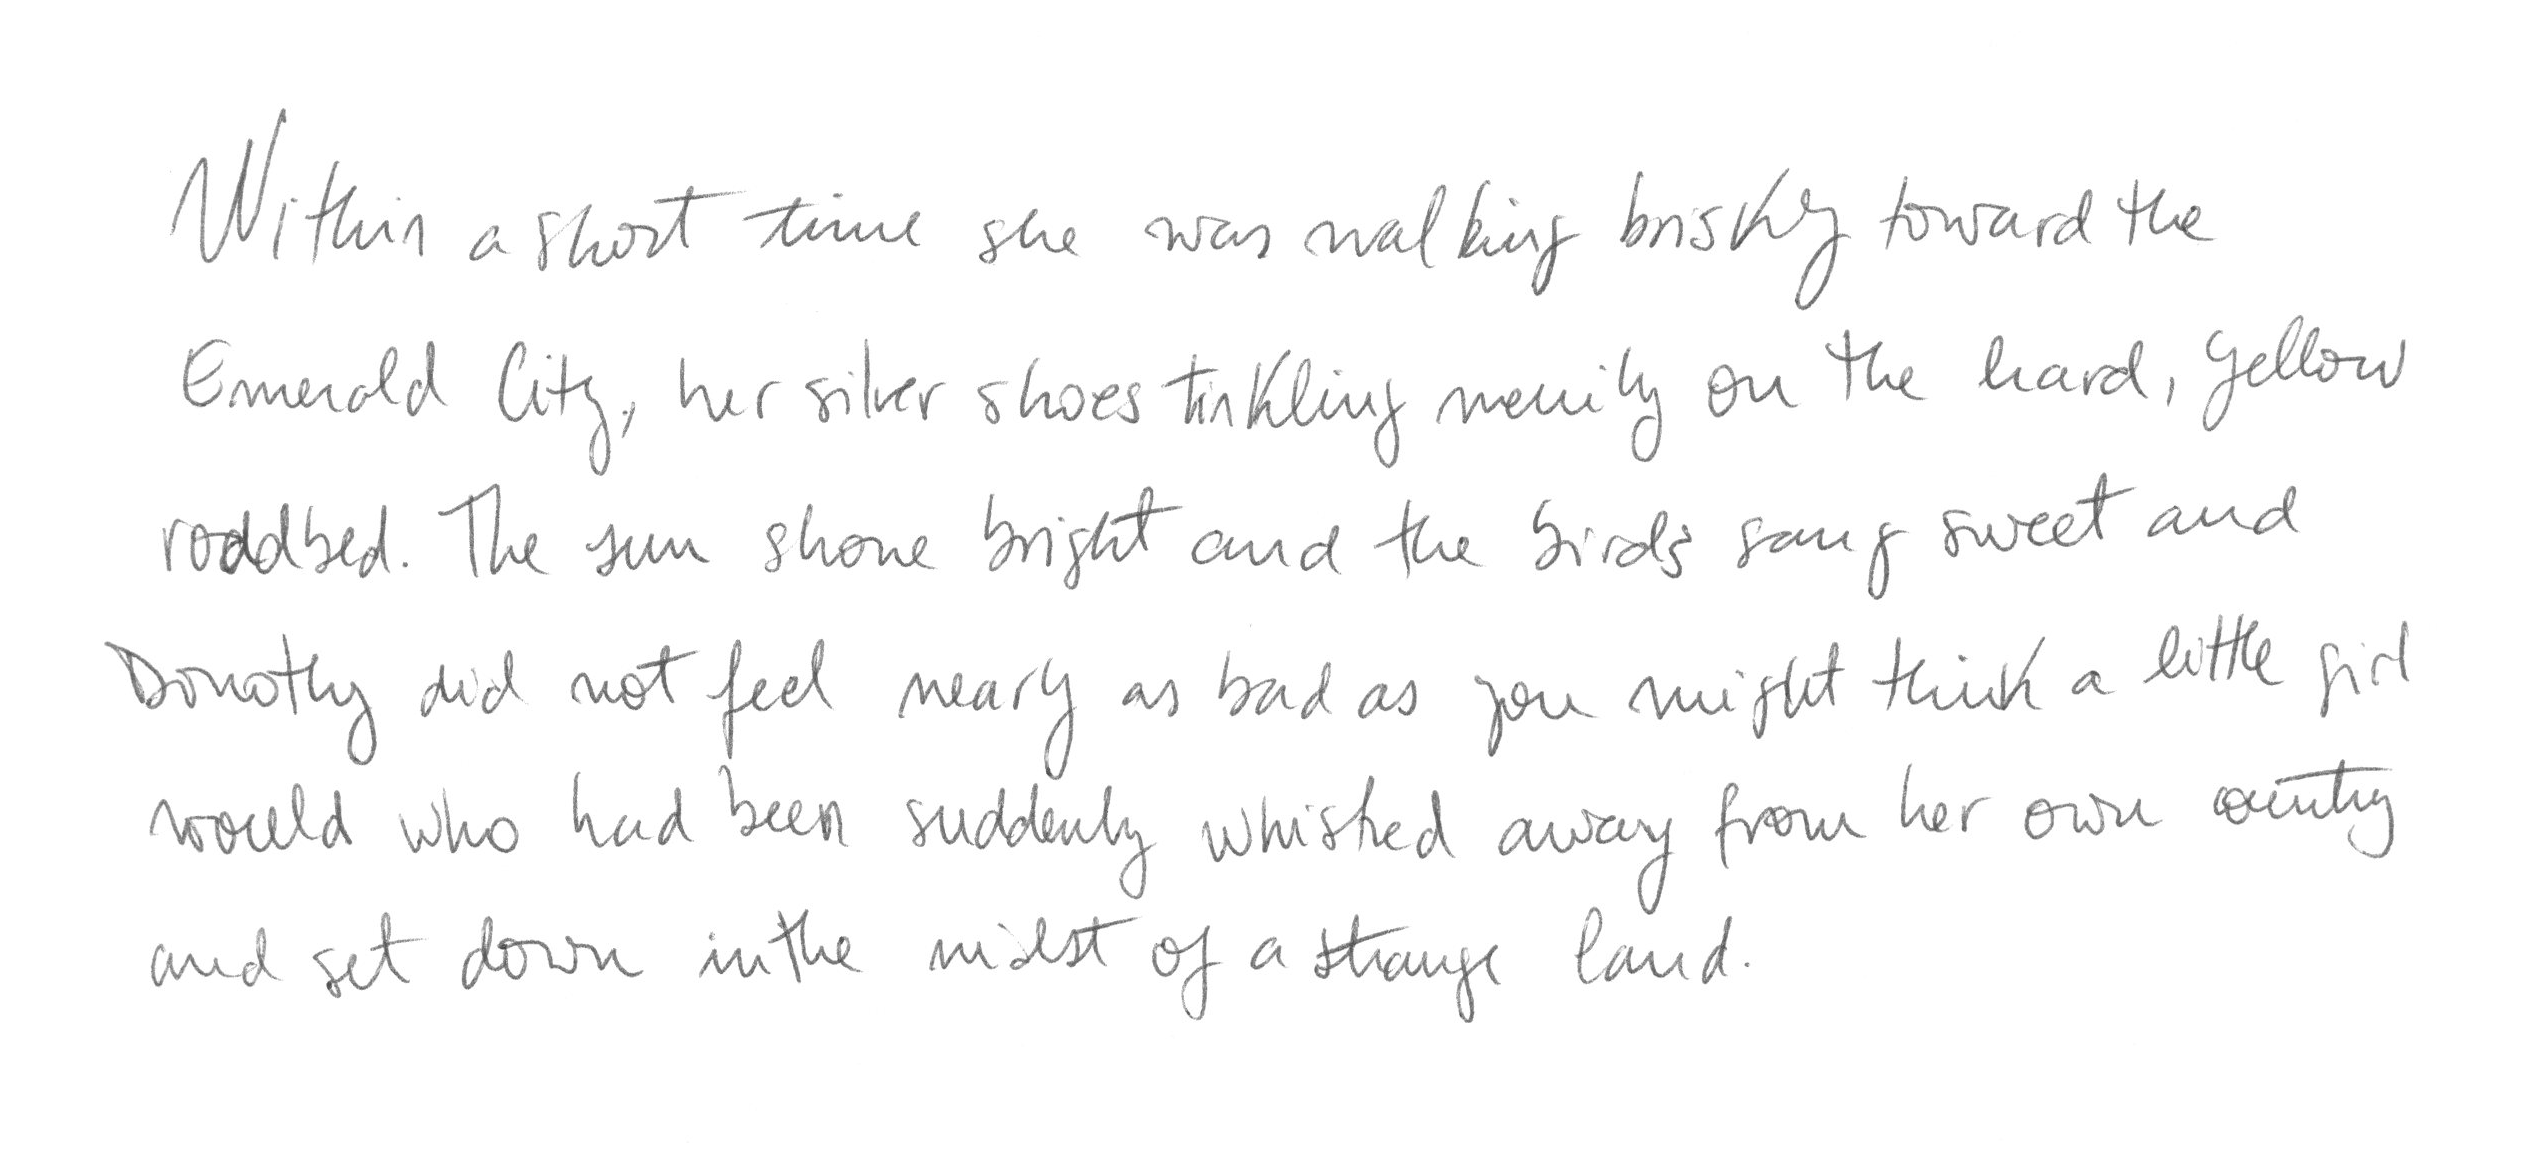 Within a short time she was walking briskly toward the
Emerald City, her silver shoes tinkling merrily on the hard, yellow
roadbed. The sun shone bright and the birds sang sweet and
Dorothy did not feel nearly as bad as you might think a little girl
would who had been suddenly whisked away from her own country
and set down in the midst of a strange land.